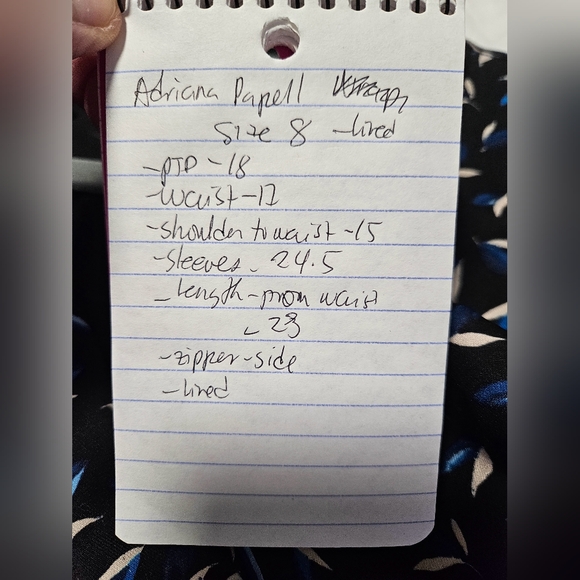 Adriana Papell
Size 8 - lined
- PTP - 18
- waist - 17
- shoulder to waist - 15
- sleeves - 24.5
- length - from waist
-
- zipper - side
- lined